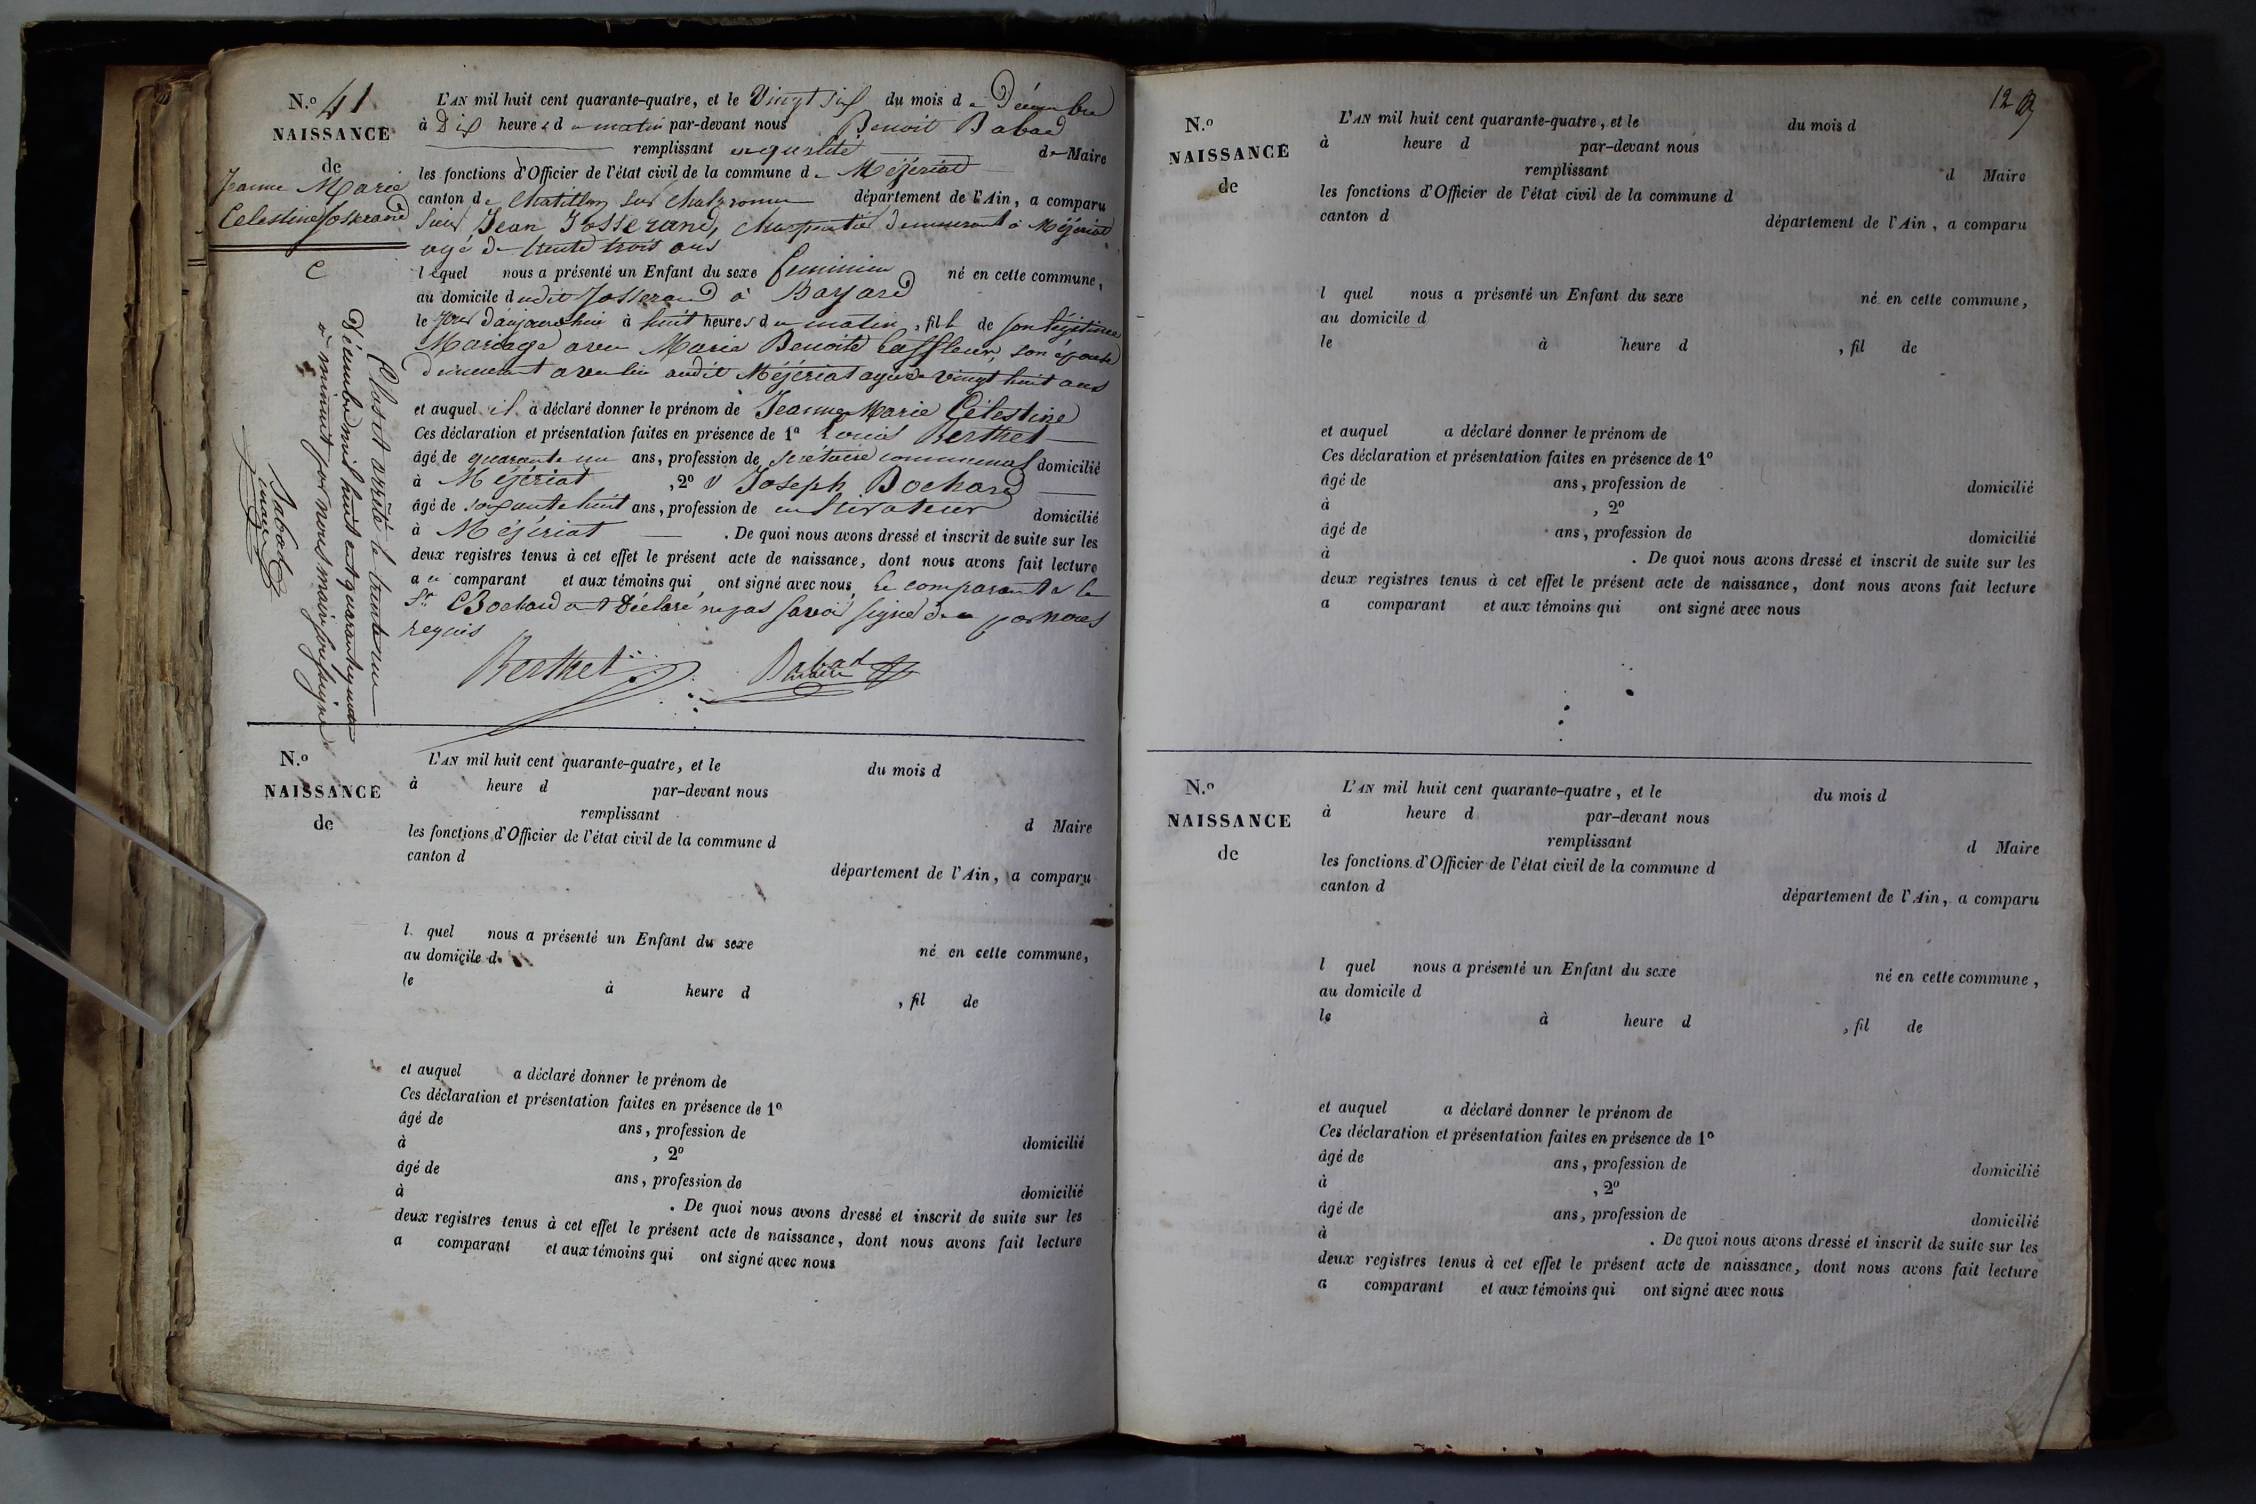 N.º 41
NAISSANCE
de
Jeanne Marie
Celestine Josserand
L'AN mil huit cent quarante-quatre, et le Vingt six du mois de Décembre
à Dix heures du matin par-devant nous Benoit Babad
remplissant en qualité de Maire
les fonctions d'Officier de l'état civil de la commune de Mézériat
canton de Chatillon sur Chalaronne département de l'Ain, a comparu
Sieur Jean Josserand, charpentier demeurant à Mézériat
agé de trente trois ans
lequel nous a présenté un Enfant du sexe feminin né en cette commune,
au domicile dudit Josserand à Bayard
le jour d'aujourdhui à huit heures du matin, fille de son légitime
Mariage avec Marie Benoite Laffleur, son épouse
demeurant avec lui audit Mézériat agée de vingt huit ans
et auquel il a déclaré donner le prénom de Jeanne Marie Célestine
Ces déclaration et présentation faites en présence de 1º Louis Berthet
âgé de quarante un ans, profession de secrétaire communal domicilié
à Mézériat, 2º Joseph Bochard
âgé de soixante huit ans, profession de cultivateur domicilié
à Mézériat . De quoi nous avons dressé et inscrit de suite sur les
deux registres tenus à cet effet le présent acte de naissance, dont nous avons fait lecture
au comparant et aux témoins qui ont signé avec nous, le comparant et le
Sr Bochard ont Déclaré ne pas savoir signer de ce par nous
requis
Berthet
Babad
maire
Clos et arrêté le trente un
Décembre mil huit cent quarante quatre
à minuit par nous maire soussigné
Babad
maire
N.º
NAISSANCE
de
L'AN mil huit cent quarante-quatre, et le du mois d
à heure d par-devant nous
remplissant d Maire
les fonctions d'Officier de l'état civil de la commune d
canton d département de l'Ain, a comparu
l quel nous a présenté un Enfant du sexe né en cette commune,
au domicile d
le à heure d , fil de
et auquel a déclaré donner le prénom de
Ces déclaration et présentation faites en présence de 1º
âgé de ans, profession de domicilié
à , 2º
âgé de ans, profession de domicilié
à . De quoi nous avons dressé et inscrit de suite sur les
deux registres tenus à cet effet le présent acte de naissance, dont nous avons fait lecture
a comparant et aux témoins qui ont signé avec nous
N.º
NAISSANCE
de
L'AN mil huit cent quarante-quatre, et le du mois d
à heure d par-devant nous
remplissant d Maire
les fonctions d'Officier de l'état civil de la commune d
canton d département de l'Ain, a comparu
l quel nous a présenté un Enfant du sexe né en cette commune,
au domicile d
le à heure d , fil de
et auquel a déclaré donner le prénom de
Ces déclaration et présentation faites en présence de 1º
âgé de ans, profession de domicilié
à , 2º
âgé de ans, profession de domicilié
à . De quoi nous avons dressé et inscrit de suite sur les
deux registres tenus à cet effet le présent acte de naissance, dont nous avons fait lecture
a comparant et aux témoins qui ont signé avec nous
N.º
NAISSANCE
de
L'AN mil huit cent quarante-quatre, et le du mois d
à heure d par-devant nous
remplissant d Maire
les fonctions d'Officier de l'état civil de la commune d
canton d département de l'Ain, a comparu
l quel nous a présenté un Enfant du sexe né en cette commune,
au domicile d
le à heure d , fil de
et auquel a déclaré donner le prénom de
Ces déclaration et présentation faites en présence de 1º
âgé de ans, profession de domicilié
à , 2º
âgé de ans, profession de domicilié
à . De quoi nous avons dressé et inscrit de suite sur les
deux registres tenus à cet effet le présent acte de naissance, dont nous avons fait lecture
a comparant et aux témoins qui ont signé avec nous